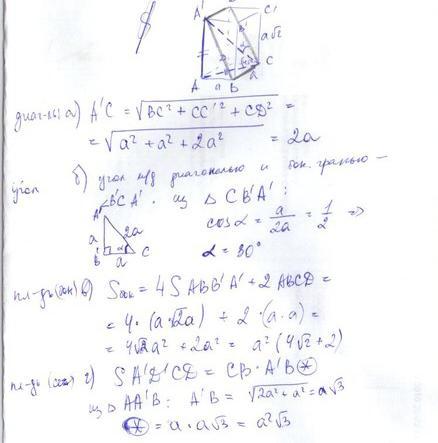 A' B' C'
a√2
A a B a C
диаг-ль а) A'C = √BC² + CC'² + CD² =
= √a² + a² + 2a² = 2a
угол б) угол м/д диагональю и бок. гранью –
∠B'CA'. из △ CB'A' :
A' a 2a B' α a C
cos α = a/2a = 1/2 =>
α = 30°
пл-дь (бок) в) Sбок = 4 S ABB'A' + 2 ABCD =
= 4 · (a·√2a) + 2 · (a · a) =
= 4√2a² + 2a² = a² (4√2 + 2)
пл-дь (сеч) г) S A'D'CD = CB · A'B ⊛
из △ AA'B : A'B = √2a² + a² = a√3
⊛ = a · a√3 = a²√3